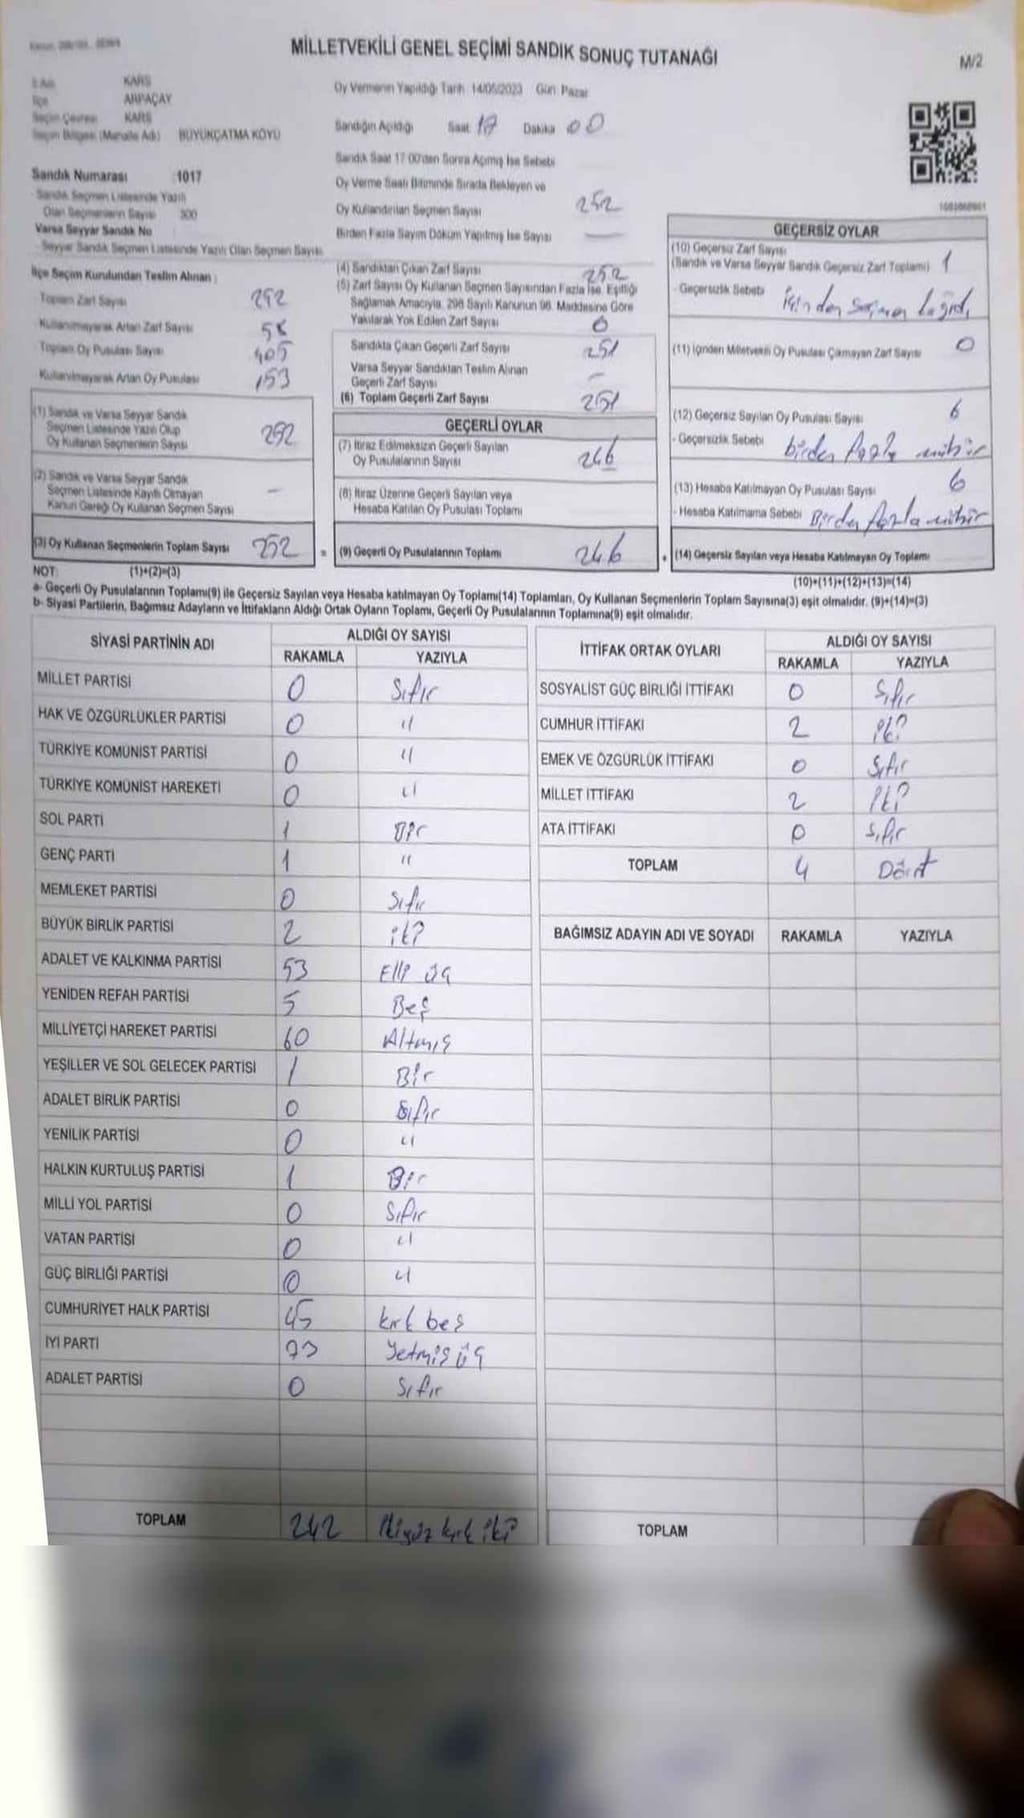 MİLLETVEKİLİ GENEL SEÇİMİ SANDIK SONUÇ TUTANAĞI
M/2
KARS
İlçe ARPAÇAY
Seçim Çevresi KARS
Seçim Bölgesi (Mahalle Adı) BÜYÜKÇATMA KÖYÜ
Sandık Numarası :1017
Sandık Seçmen Listesinde Yazılı
Olan Seçmenlerin Sayısı 300
Varsa Seyyar Sandık No
Seyyar Sandık Seçmen Listesinde Yazılı Olan Seçmen Sayısı
Oy Vermenin Yapıldığı Tarih 14/05/2023 Gün Pazar
Sandığın Açıldığı Saat 17 Dakika 00
Sandık Saat 17:00'den Sonra Açılmış İse Sebebi
Oy Verme Saati Bitiminde Sırada Bekleyen ve
Oy Kullandırılan Seçmen Sayısı 252
Birden Fazla Sayım Döküm Yapılmış İse Sayısı —
İlçe Seçim Kurulundan Teslim Alınan :
Toplam Zarf Sayısı
Kullanılmayarak Artan Zarf Sayısı
Toplam Oy Pusulası Sayısı 405
Kullanılmayarak Artan Oy Pusulası 153
(1) Sandık ve Varsa Seyyar Sandık
Seçmen Listesinde Yazılı Olup
Oy Kullanan Seçmenlerin Sayısı
(2) Sandık ve Varsa Seyyar Sandık
Seçmen Listesinde Kayıtlı Olmayan
Kanun Gereği Oy Kullanan Seçmen Sayısı —
(3) Oy Kullanan Seçmenlerin Toplam Sayısı 252 =
(4) Sandıktan Çıkan Zarf Sayısı 252
(5) Zarf Sayısı Oy Kullanan Seçmen Sayısından Fazla İse, Eşitliği
Sağlamak Amacıyla, 298 Sayılı Kanunun 98. Maddesine Göre
Yakılarak Yok Edilen Zarf Sayısı 0
Sandıkta Çıkan Geçerli Zarf Sayısı 251
Varsa Seyyar Sandıktan Teslim Alınan
Geçerli Zarf Sayısı —
(6) Toplam Geçerli Zarf Sayısı 251
GEÇERLİ OYLAR
(7) İtiraz Edilmeksizin Geçerli Sayılan
Oy Pusulalarının Sayısı 246
(8) İtiraz Üzerine Geçerli Sayılan veya
Hesaba Katılan Oy Pusulası Toplamı
(9) Geçerli Oy Pusulalarının Toplamı 246 +
GEÇERSİZ OYLAR
(10) Geçersiz Zarf Sayısı
(Sandık ve Varsa Seyyar Sandık Geçersiz Zarf Toplamı) 1
- Geçersizlik Sebebi İçinden seçmen kağıdı
(11) İçinden Milletvekili Oy Pusulası Çıkmayan Zarf Sayısı 0
(12) Geçersiz Sayılan Oy Pusulası Sayısı 6
- Geçersizlik Sebebi birden fazla mühür
(13) Hesaba Katılmayan Oy Pusulası Sayısı 6
- Hesaba Katılmama Sebebi Birden fazla mühür
(14) Geçersiz Sayılan veya Hesaba Katılmayan Oy Toplamı
NOT: (1)+(2)=(3)
(10)+(11)+(12)+(13)=(14)
a- Geçerli Oy Pusulalarının Toplamı(9) ile Geçersiz Sayılan veya Hesaba katılmayan Oy Toplamı(14) Toplamları, Oy Kullanan Seçmenlerin Toplam Sayısına(3) eşit olmalıdır. (9)+(14)=(3)
b- Siyasi Partilerin, Bağımsız Adayların ve İttifakların Aldığı Ortak Oyların Toplamı, Geçerli Oy Pusulalarının Toplamına(9) eşit olmalıdır.
SİYASİ PARTİNİN ADI ALDIĞI OY SAYISI
RAKAMLA YAZIYLA
MİLLET PARTİSİ 0 Sıfır
HAK VE ÖZGÜRLÜKLER PARTİSİ 0 "
TÜRKİYE KOMÜNİST PARTİSİ 0 "
TÜRKİYE KOMÜNİST HAREKETİ 0 "
SOL PARTİ 1 Bir
GENÇ PARTİ 1 "
MEMLEKET PARTİSİ 0 Sıfır
BÜYÜK BİRLİK PARTİSİ 2 iki
ADALET VE KALKINMA PARTİSİ 53 Elli üç
YENİDEN REFAH PARTİSİ 5 Beş
MİLLİYETÇİ HAREKET PARTİSİ 60 Altmış
YEŞİLLER VE SOL GELECEK PARTİSİ 1 Bir
ADALET BİRLİK PARTİSİ 0 Sıfır
YENİLİK PARTİSİ 0 "
HALKIN KURTULUŞ PARTİSİ 1 Bir
MİLLİ YOL PARTİSİ 0 Sıfır
VATAN PARTİSİ 0 "
GÜÇ BİRLİĞİ PARTİSİ 0 "
CUMHURİYET HALK PARTİSİ 45 kırk beş
İYİ PARTİ 73 Yetmiş üç
ADALET PARTİSİ 0 Sıfır
TOPLAM 242 İkiyüz kırk iki
İTTİFAK ORTAK OYLARI ALDIĞI OY SAYISI
RAKAMLA YAZIYLA
SOSYALİST GÜÇ BİRLİĞİ İTTİFAKI 0 Sıfır
CUMHUR İTTİFAKI 2 İki
EMEK VE ÖZGÜRLÜK İTTİFAKI 0 Sıfır
MİLLET İTTİFAKI 2 İki
ATA İTTİFAKI 0 Sıfır
TOPLAM 4 Dört
BAĞIMSIZ ADAYIN ADI VE SOYADI RAKAMLA YAZIYLA
TOPLAM